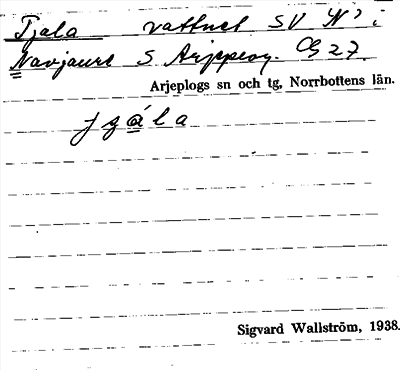 Tjala vattnet SV Nº i
Navjaure S. Arjeplog. Gg 27.
Arjeplogs sn och tg, Norrbottens län.
Sigvard Wallström, 1938.